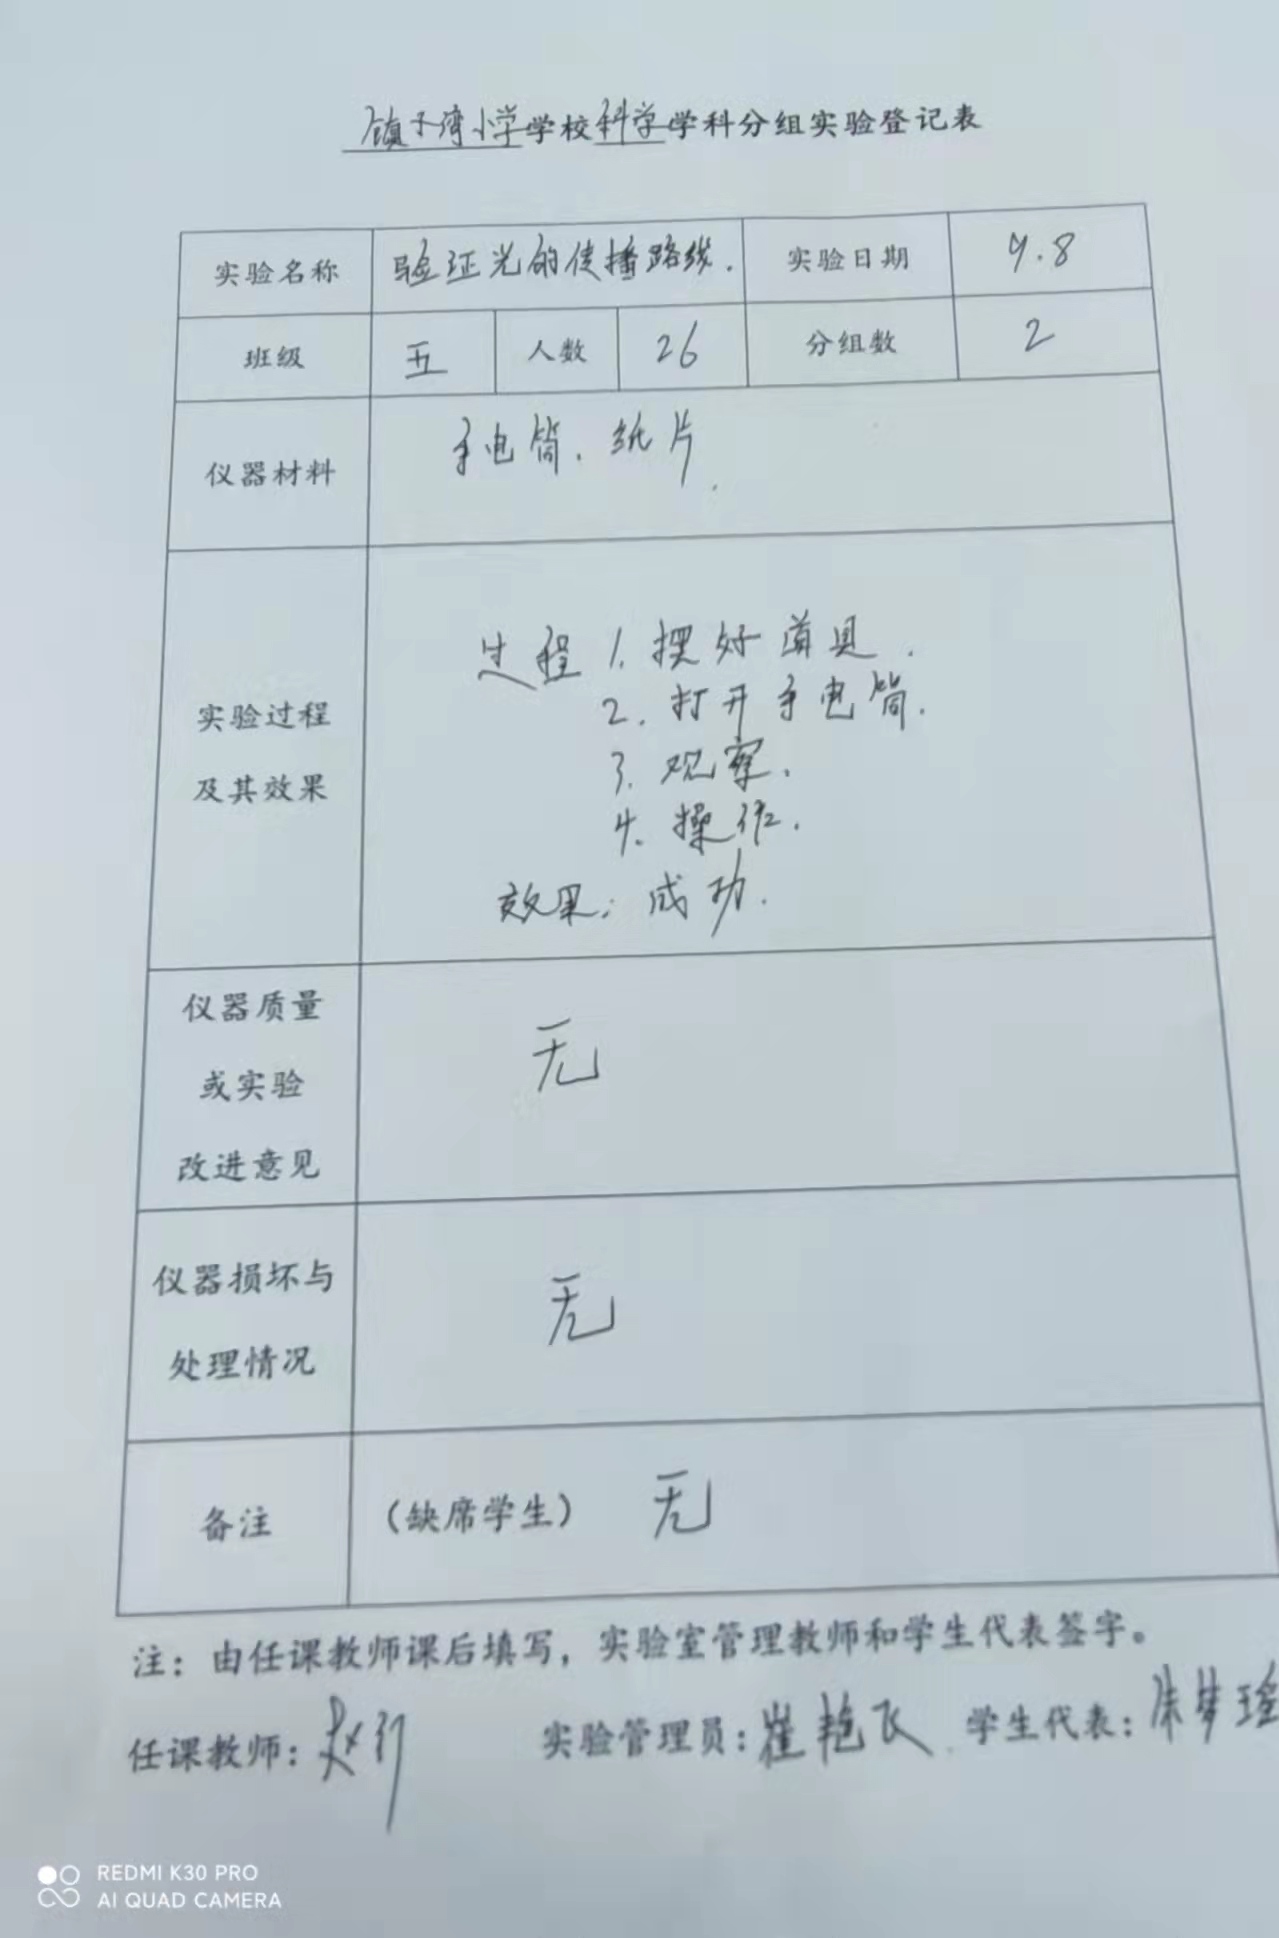 镇子湾小学学校科学学科分组实验登记表
实验名称 验证光的传播路线. 实验日期 9.8
班级 五 人数 26 分组数 2
仪器材料 手电筒、纸片.
过程 1. 摆好道具.
2. 打开手电筒.
实验过程
3. 观察.
及其效果
4. 操作.
效果: 成功.
仪器质量
或实验 无
改进意见
仪器损坏与
无
处理情况
备注 (缺席学生) 无
注：由任课教师课后填写，实验室管理教师和学生代表签字。
任课教师: 赵 实验管理员: 崔艳飞 学生代表: 朱梦瑶
REDMI K30 PRO
AI QUAD CAMERA